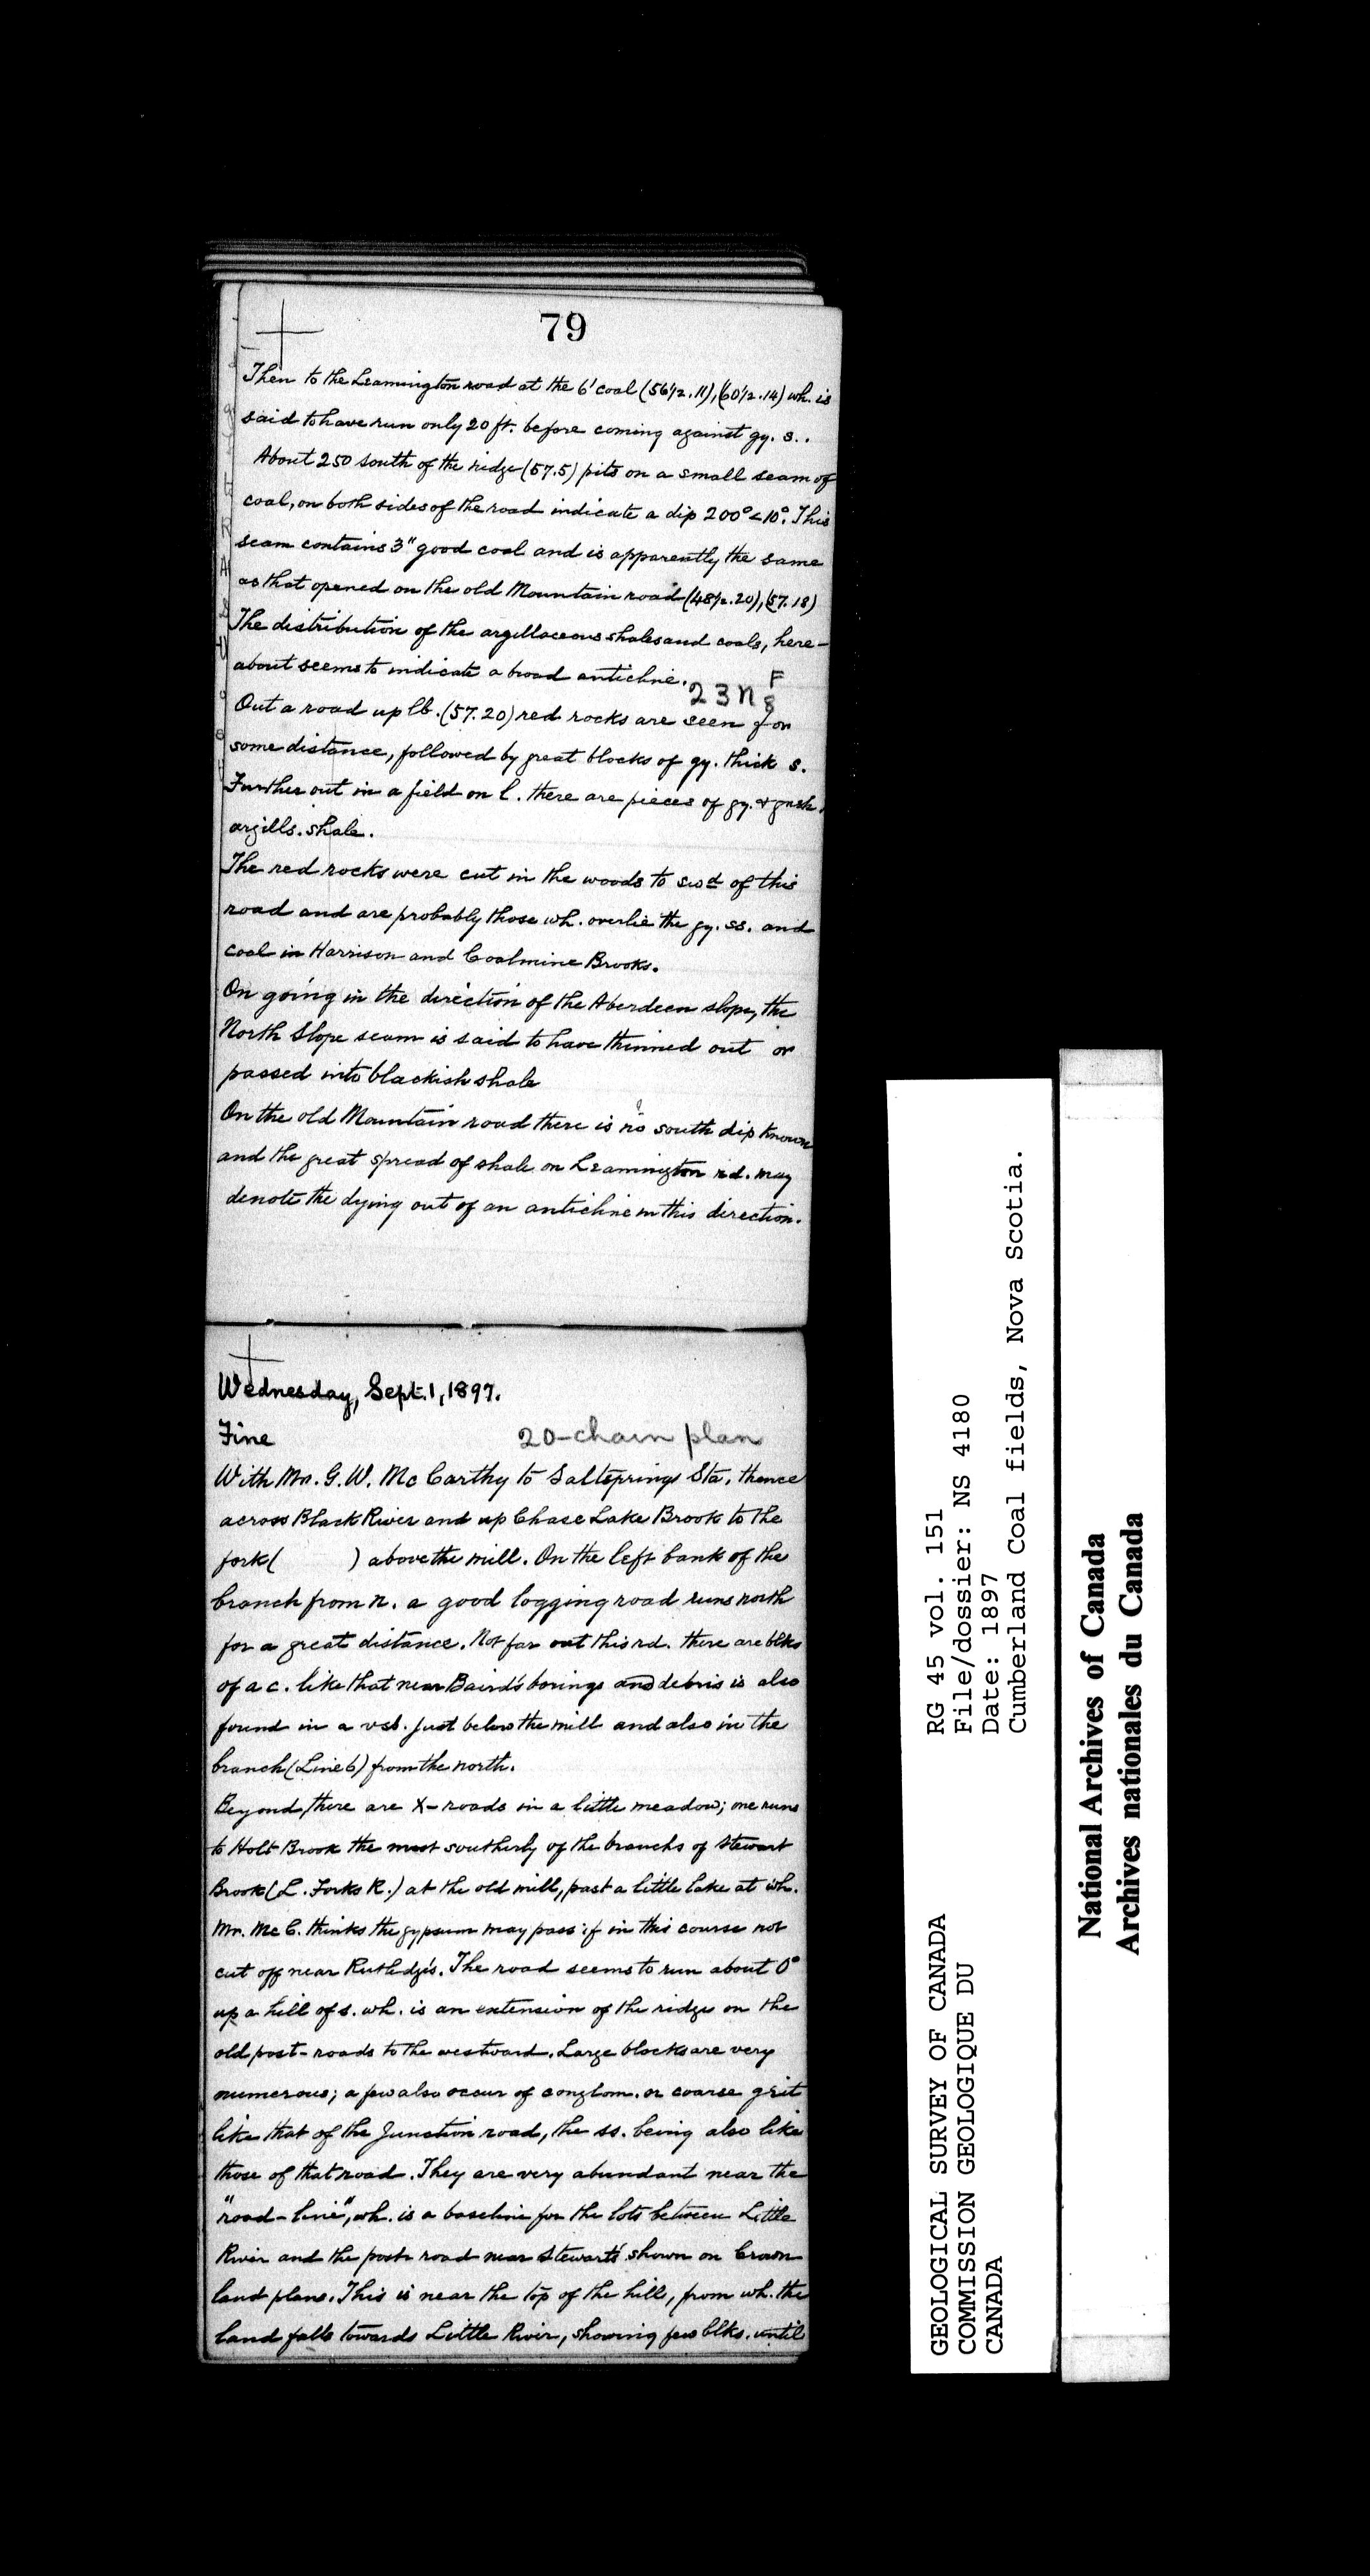 79
Then to the Leamington road at the 6' coal (56½.11), (60½.14) wh. is
said to have run only 20 ft. before coming against gy. s..
About 250 south of the ridge (57.5) pits on a small seam of
coal, on both sides of the road indicate a dip 200°<10°. This
seam contains 3" good coal and is apparently the same
as that opened on the old Mountain road (48½.20), (57.18)
The distribution of the argillaceous shales and coals, here-
about seems to indicate a broad anticline.
23 N F 8
Out a road up lb. (57.20) red rocks are seen for
some distance, followed by great blocks of gy. thick s.
Further out in a field on l. there are pieces of gy. & gnsh.
argills. shale.
The red rocks were cut in the woods to swd of this
road and are probably those wh. overlie the gy. ss. and
coal in Harrison and Coalmine Brooks.
On going in the direction of the Aberdeen slope, the
North Slope seam is said to have thinned out or
passed into blackish shale
On the old Mountain road there is no south dip known
and the great spread of shale on Leamington rd. may
denote the dying out of an anticline in this direction.
Wednesday, Sept. 1, 1897.
Fine 20-chain plan
With Mr. G. W. McCarthy to Saltsprings Sta. thence
across Black River and up Chase Lake Brook to the
fork ( ) above the mill. On the left bank of the
branch from n. a good logging road runs north
for a great distance. Not far out this rd. there are blks
of a c. like that near Baird's borings and debris is also
found in a vsb. just below the mill and also in the
branch (Line 6) from the north.
Beyond, there are X-roads in a little meadow; one runs
to Holt Brook the most southerly of the branchs of Stewart
Brook (L. Forks R.) at the old mill, past a little lake at wh.
Mr. McC. thinks the gypsum may pass if in this course not
cut off near Rutledge's. The road seems to run about 0°
up a hill of s. wh. is an extension of the ridge on the
old post-roads to the westward. Large blocks are very
numerous; a few also occur of conglom. or coarse grit
like that of the Junction road, the ss. being also like
those of that road. They are very abundant near the
"road-line", wh. is a baseline for the lots between Little
River and the post road near Stewarts' shown on Crown
land plans. This is near the top of the hill, from wh. the
land falls towards Little River, showing few blks. until
GEOLOGICAL SURVEY OF CANADA
COMMISSION GEOLOGIQUE DU
CANADA
RG 45 vol. 151
File/dossier: NS 4180
Date: 1897
Cumberland Coal fields, Nova Scotia.
National Archives of Canada
Archives nationales du Canada